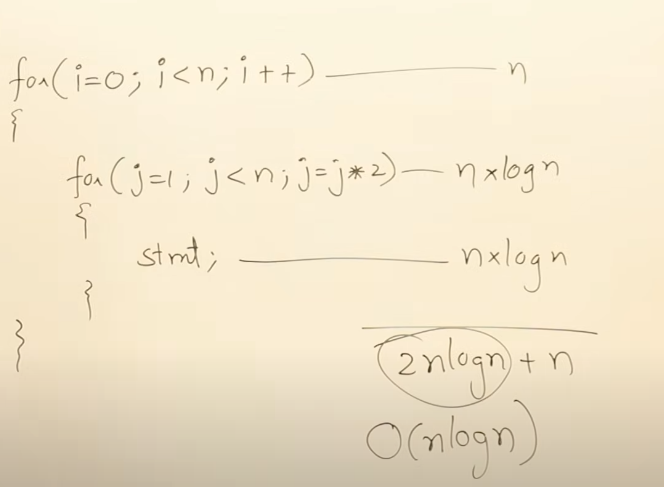 for(i=0; i<n; i++) ——— n
{
for(j=1; j<n; j=j*2) — n×logn
{
stmt; ——— n×logn
}
}
2nlogn + n
O(nlogn)